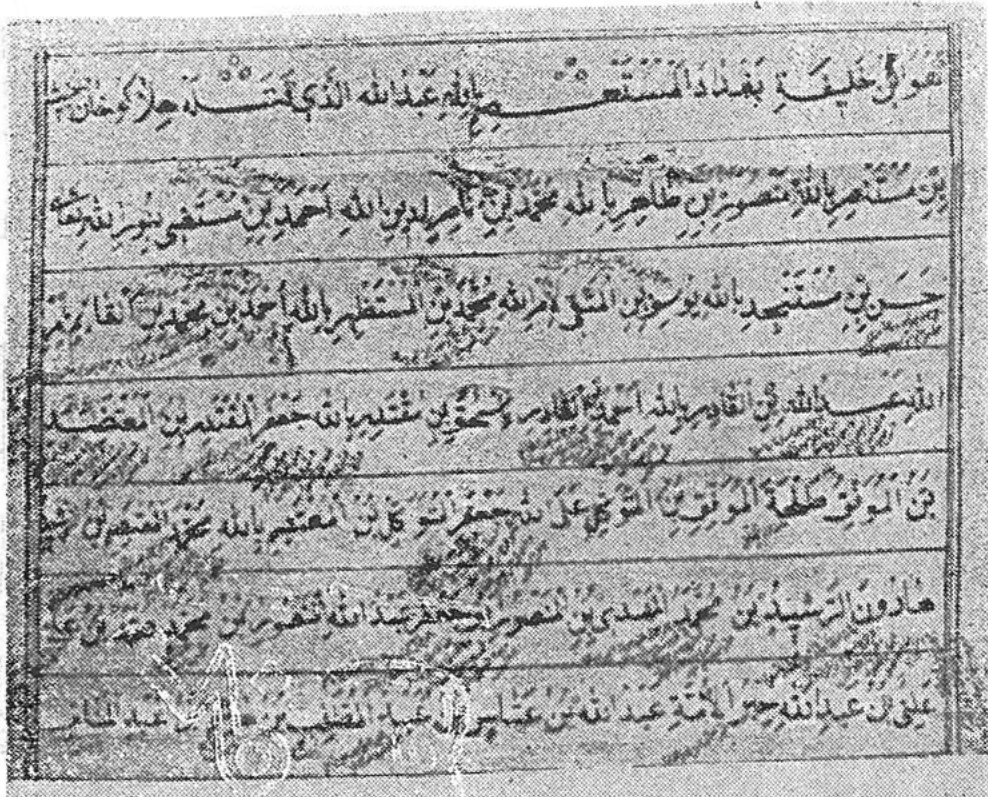 خليفة بغداد المستعصم بالله عبدالله الذي قتله هلاكو خان
بن مستنصر بالله منصور بن ظاهر بالله محمد بن ناصر لدين الله احمد بن مستضي بنور الله
حسن بن مستنجد بالله يوسف بن المتقي لامر الله محمد بن المستظهر بالله احمد بن محمد بن القايم
الله عبدالله بن القادر بالله احمد القادر اسحق بن مقتدر بالله جعفر المقتدر بن المعتضد
بن الموفق طلحة الموفق بن المتوكل على الله جعفر المتوكل بن المعتصم بالله محمد المعتصم بن
هارون الرشيد بن محمد المهدي بن المنصور جعفر عبدالله المنصور بن محمد محمد بن علي
علي بن عبدالله حبر الامة عبدالله بن عباس بن عبد المطلب بن عبد المناف